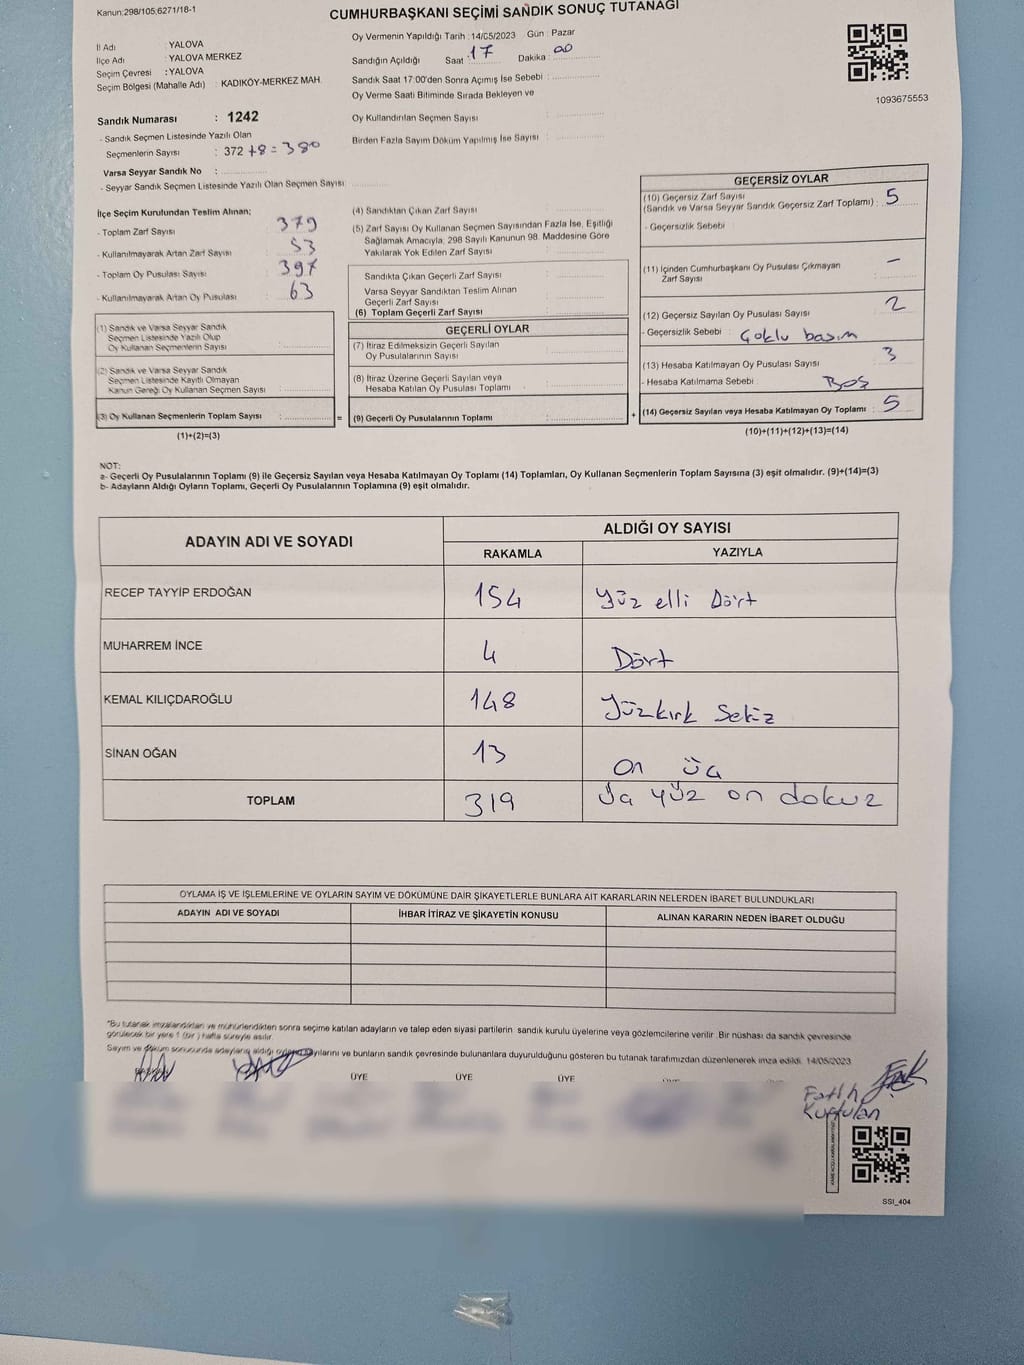 Kanun:298/105,6271/18-1
CUMHURBAŞKANI SEÇİMİ SANDIK SONUÇ TUTANAĞI
İl Adı : YALOVA
İlçe Adı : YALOVA MERKEZ
Seçim Çevresi : YALOVA
Seçim Bölgesi (Mahalle Adı) : KADIKÖY-MERKEZ MAH.
Sandık Numarası : 1242
- Sandık Seçmen Listesinde Yazılı Olan
Seçmenlerin Sayısı : 372 +8 = 380
Varsa Seyyar Sandık No :
- Seyyar Sandık Seçmen Listesinde Yazılı Olan Seçmen Sayısı:
Oy Vermenin Yapıldığı Tarih : 14/05/2023 Gün : Pazar
Sandığın Açıldığı Saat : 17 Dakika : 00
Sandık Saat 17:00'den Sonra Açımış İse Sebebi :
Oy Verme Saati Bitiminde Sırada Bekleyen ve
Oy Kullandırılan Seçmen Sayısı :
Birden Fazla Sayım Döküm Yapılmış İse Sayısı :
1093675553
İlçe Seçim Kurulundan Teslim Alınan;
- Toplam Zarf Sayısı : 379
- Kullanılmayarak Artan Zarf Sayısı : 53
- Toplam Oy Pusulası Sayısı : 397
- Kullanılmayarak Artan Oy Pusulası : 63
(1) Sandık ve Varsa Seyyar Sandık
Seçmen Listesinde Yazılı Olup
Oy Kullanan Seçmenlerin Sayısı :
(2) Sandık ve Varsa Seyyar Sandık
Seçmen Listesinde Kayıtlı Olmayan
Kanun Gereği Oy Kullanan Seçmen Sayısı :
(3) Oy Kullanan Seçmenlerin Toplam Sayısı :
(1)+(2)=(3)
(4) Sandıktan Çıkan Zarf Sayısı :
(5) Zarf Sayısı Oy Kullanan Seçmen Sayısından Fazla İse, Eşitliği
Sağlamak Amacıyla, 298 Sayılı Kanunun 98. Maddesine Göre
Yakılarak Yok Edilen Zarf Sayısı :
Sandıkta Çıkan Geçerli Zarf Sayısı :
Varsa Seyyar Sandıktan Teslim Alınan
Geçerli Zarf Sayısı :
(6) Toplam Geçerli Zarf Sayısı :
GEÇERLİ OYLAR
(7) İtiraz Edilmeksizin Geçerli Sayılan
Oy Pusulalarının Sayısı :
(8) İtiraz Üzerine Geçerli Sayılan veya
Hesaba Katılan Oy Pusulaları Toplamı :
= (9) Geçerli Oy Pusulalarının Toplamı : +
GEÇERSİZ OYLAR
(10) Geçersiz Zarf Sayısı
(Sandık ve Varsa Seyyar Sandık Geçersiz Zarf Toplamı) : 5
- Geçersizlik Sebebi :
(11) İçinden Cumhurbaşkanı Oy Pusulası Çıkmayan
Zarf Sayısı : -
(12) Geçersiz Sayılan Oy Pusulası Sayısı : 2
- Geçersizlik Sebebi : Çoklu basım
(13) Hesaba Katılmayan Oy Pusulası Sayısı : 3
- Hesaba Katılmama Sebebi : Boş
(14) Geçersiz Sayılan veya Hesaba Katılmayan Oy Toplamı : 5
(10)+(11)+(12)+(13)=(14)
NOT:
a- Geçerli Oy Pusulalarının Toplamı (9) ile Geçersiz Sayılan veya Hesaba Katılmayan Oy Toplamı (14) Toplamları, Oy Kullanan Seçmenlerin Toplam Sayısına (3) eşit olmalıdır. (9)+(14)=(3)
b- Adayların Aldığı Oyların Toplamı, Geçerli Oy Pusulalarının Toplamına (9) eşit olmalıdır.
ADAYIN ADI VE SOYADI ALDIĞI OY SAYISI
RAKAMLA YAZIYLA
RECEP TAYYİP ERDOĞAN 154 Yüz elli Dört
MUHARREM İNCE 4 Dört
KEMAL KILIÇDAROĞLU 148 Yüzkırk Sekiz
SİNAN OĞAN 13 On üç
TOPLAM 319 Üç yüz on dokuz
OYLAMA İŞ VE İŞLEMLERİNE VE OYLARIN SAYIM VE DÖKÜMÜNE DAİR ŞİKAYETLERLE BUNLARA AİT KARARLARIN NELERDEN İBARET BULUNDUKLARI
ADAYIN ADI VE SOYADI İHBAR İTİRAZ VE ŞİKAYETİN KONUSU ALINAN KARARIN NEDEN İBARET OLDUĞU
"Bu tutanak imzalandıktan ve mühürlendikten sonra seçime katılan adayların ve talep eden siyasi partilerin sandık kurulu üyelerine veya gözlemcilerine verilir. Bir nüshası da sandık çevresinde
görülecek bir yere 1 (bir) hafta süreyle asılır.
Sayım ve döküm sonucunda adayların aldığı oyların sayılarını ve bunların sandık çevresinde bulunanlara duyurulduğunu gösteren bu tutanak tarafımızdan düzenlenerek imza edildi. 14/05/2023
ÜYE ÜYE ÜYE
Fatih
Kurtulan
SSI_404